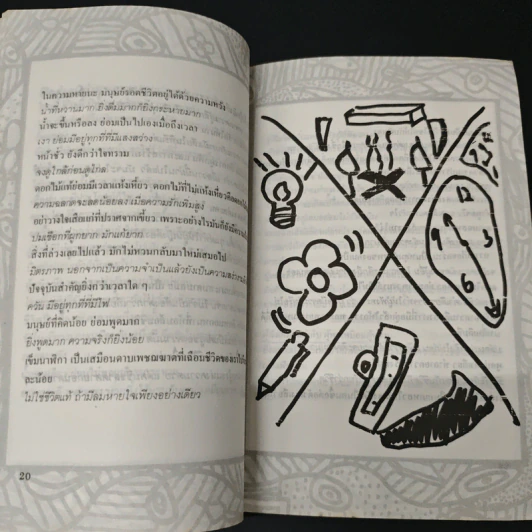 ในความหายนะ มนุษย์รอดชีวิตอยู่ได้ด้วยความหวัง
น้ำที่หวานมาก ยิ่งดื่มมากก็ยิ่งกระหายมาก
น้ำจะขึ้นหรือลง ย่อมเป็นไปเองเมื่อถึงเวลา
เงา ย่อมมีอยู่ทุกที่ที่มีแสงสว่าง
หน้าชั่ว ยังดีกว่าใจทราม
จงดูใกล้ก่อนดูไกล
ดอกไม้แท้ย่อมมีเวลาแห้งเหี่ยว ดอกไม้ที่ไม่แห้งเหี่ยวคือ
ความฉลาดจะลดน้อยลง เมื่อความรักเพิ่มสูง
อย่าวางใจเสือแก่ที่ปราศจากเขี้ยว เพราะอย่างไรมันก็ยังมี
ปมเชือกที่ผูกยาก มักแก้ยาก
สิ่งที่ล่วงเลยไปแล้ว มักไม่หวนกลับมาใหม่เสมอไป
มิตรภาพ นอกจากเป็นความจำเป็นแล้วยังเป็นความ
ปัจจุบันสำคัญยิ่งกว่าเวลาใด ๆ
ควัน มีอยู่ทุกที่ที่มีไฟ
มนุษย์ที่คิดน้อย ย่อมพูดมาก
ยิ่งพูดมาก ความจริงก็ยิ่งน้อย
เข็มนาฬิกา เป็นเสมือนดาบเพชฌฆาตที่เฉือนชีวิตของเราไปที
ละน้อย
ไม่ใช่ชีวิตแท้ ถ้ามีลมหายใจเพียงอย่างเดียว
20
12
9
3
6